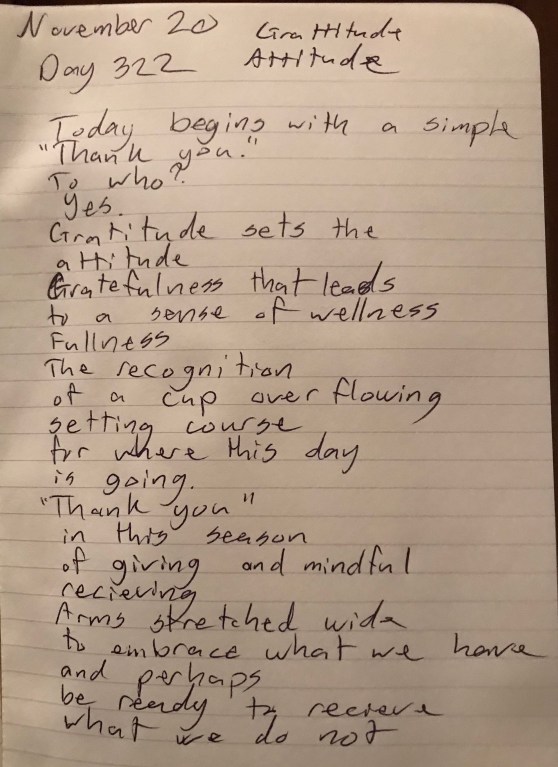 November 20 Gratitude
Day 322 Attitude
Today begins with a simple
"Thank you."
To who?
Yes.
Gratitude sets the
attitude
Gratefulness that leads
to a sense of wellness
Fullness
The recognition
of a cup overflowing
setting course
for where this day
is going.
"Thank you"
in this season
of giving and mindful
recieving
Arms stretched wide
to embrace what we have
and perhaps
be ready to recieve
what we do not